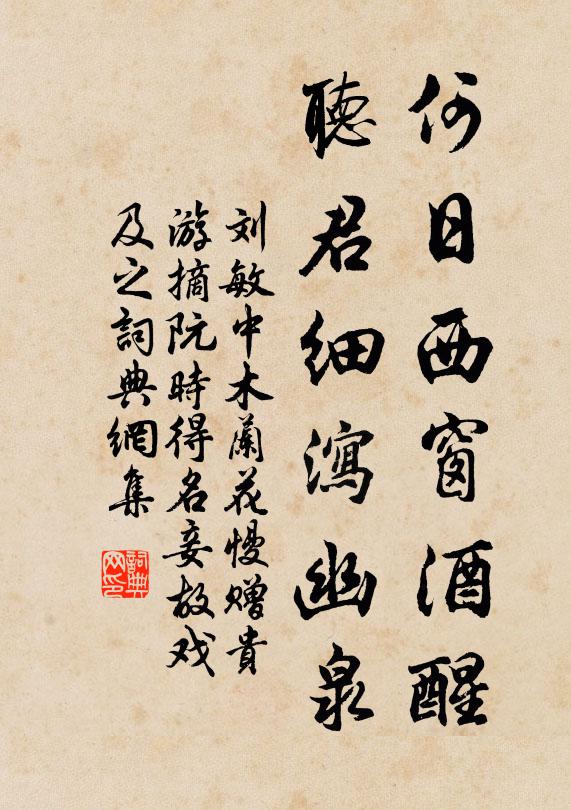 何日西窗酒醒
聽君細瀉幽泉
刘敏中木蘭花慢赠貴
游摘阮時得名妾故戏
及之詞典網集
詞典网印